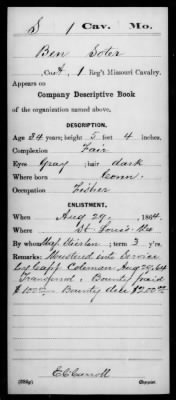 S | 1 | Cav. | Mo.
Ben Soter
Co. , 1 Reg't Missouri Cavalry.
Appears on
Company Descriptive Book
of the organization named above.
DESCRIPTION.
Age 34 years; height 5 feet 4 inches.
Complexion Fair
Eyes Gray; hair dark
Where born Conn.
Occupation Fisher
ENLISTMENT.
When Aug 29, 1864.
Where St. Louis Mo
By whom Maj ; term 3 y'rs.
Remarks: Mustered into Service
by Capt Coleman Aug 29. 64
Transferred. Bounty paid
$100.00 Bounty due $200.00
E C Carroll
Copyist.